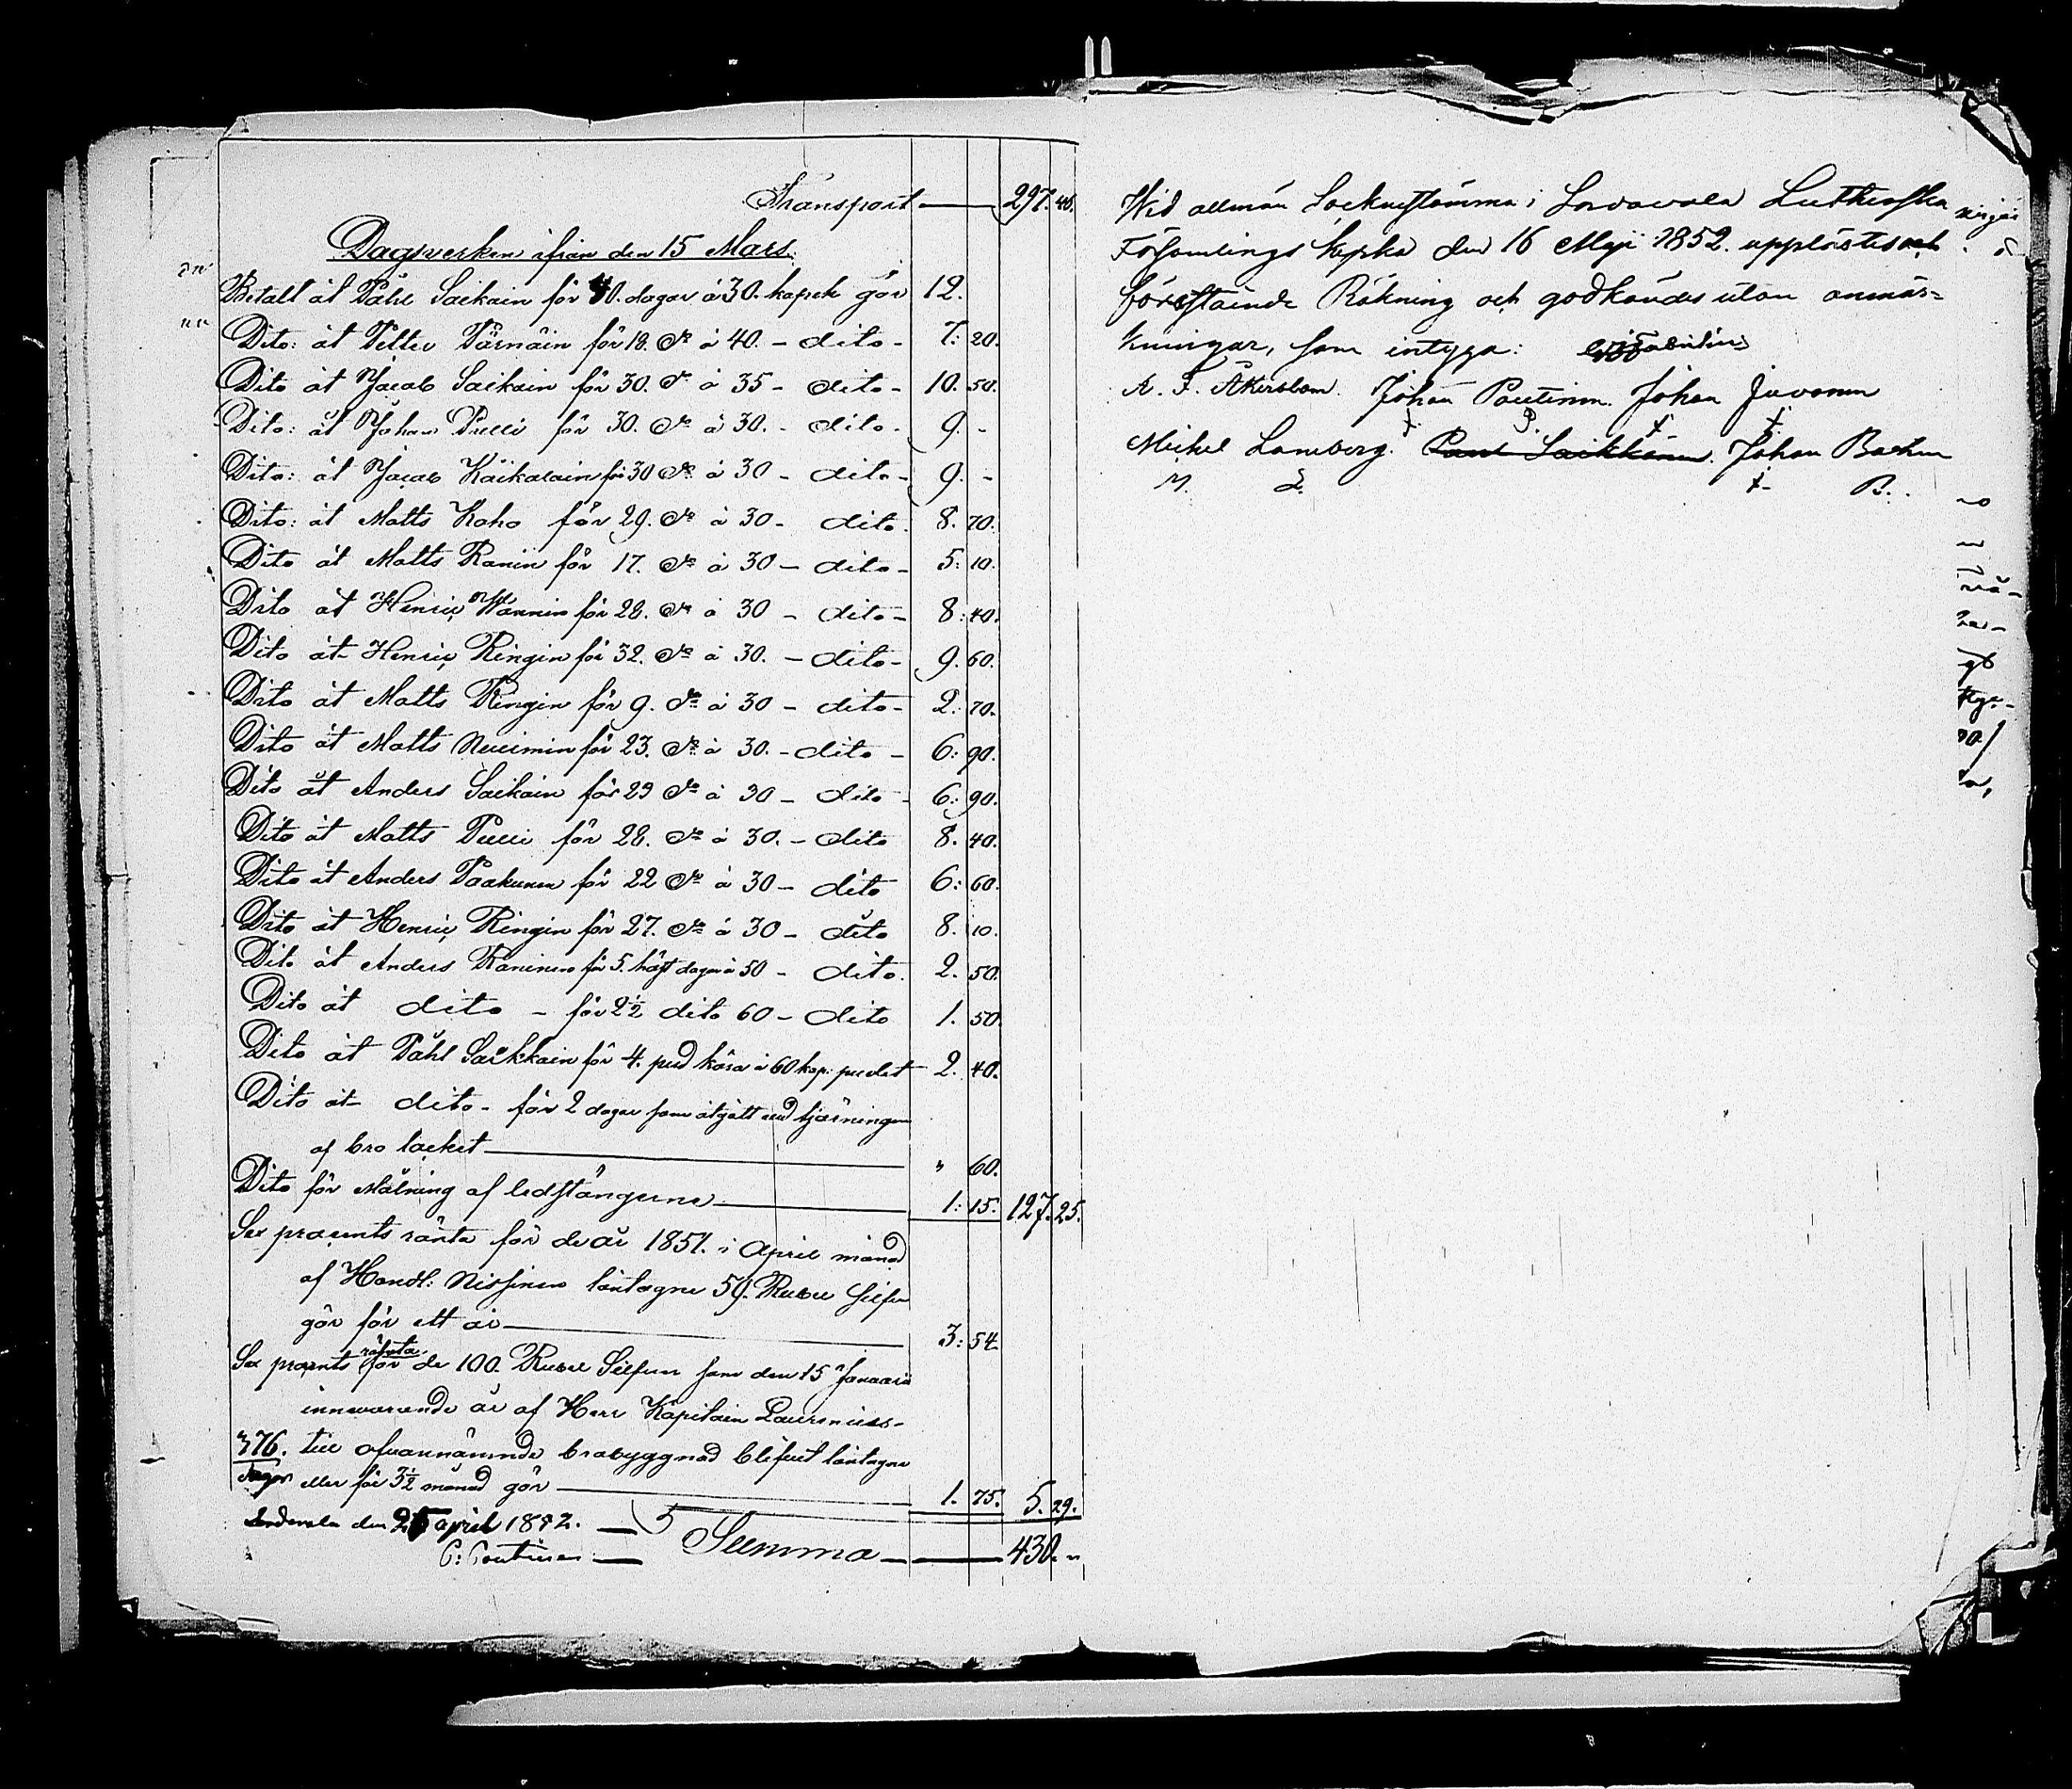 Transport — 297. 46.
Dagsverken ifrån den 15 Mars.
Betalt åt Påhl Saikain för 40. dagar à 30. kopek gör 12.
Dito: åt Petter Pärnäin för 18. d:o à 40. - dito - 7: 20.
Dito åt Jacob Saikain för 30. d:o à 35 - dito - 10. 50.
Dito: åt Johan Pulli för 30. d:o à 30. - dito - 9. -
Dito: åt Jacob Käikäläin för 30 d:o à 30 - dito - 9. -
Dito: åt Matts Koho för 29. d:o à 30 - dito. 8. 70.
Dito åt Matts Ranin för 17. d:o à 30 - dito - 5: 10.
Dito åt Henric Wänninen för 28. d:o à 30 - dito - 8: 40.
Dito åt Henric Ringin för 32. d:o à 30. - dito - 9. 60.
Dito åt Matts Ringin för 9. d:o à 30 - dito - 2: 70.
Dito åt Matts Nuuimin för 23. d:o à 30. - dito - 6: 90.
Dito åt Anders Saikain för 23 d:o à 30 - dito - 6: 90.
Dito åt Matts Pulli för 28. d:o à 30. - dito 8. 40.
Dito åt Anders Paakunen för 22 d:o à 30 - dito 6: 60.
Dito åt Henric Ringin för 27. d:o à 30 - dito 8. 10.
Dito åt Anders Raninen för 5. häst dagar à 50 - dito. 2. 50.
Dito åt dito - för 2½ dito 60 - dito 1. 50.
Dito åt Påhl Saikkain för 4. pud kåda à 60 kop: pudet 2. 40.
Dito åt dito - för 2 dagar som åtgått vid tjärningen
af bro läcket — " 60.
Dito för Målning af ledstängerna — 1: 15. 127. 25.
Sex procents ränta för de år 1851. i April månad
af Handl: Nissinen låntagne 59. Rubel Silfver
gör för ett år — 3: 54.
Sex procents ränta för de 100. Rubel Silfver som den 15 Januarii
innevarande år af Herr Kapitain Laurenius
376. till ofvannämnde brobyggnad blifvit låntagne
eller för 3½ månad gör — 1. 75. 5. 29.
Sordavala den 25 April 1852. — Summa — 430. "
P: Poutinen
Wid allmän Sockenstämma i Sordavala Lutherska
Församlings Kyrka den 16 Maji 1852. upplästes och
förestående Räkning och godkändes utan anmär=
kningar, som intyga:
A. F. Åkerblom. Johan Poutinen. Johan Juvonen
Michel Lamberg. Paul Saikkänen. Johan Backm
M. L. B.